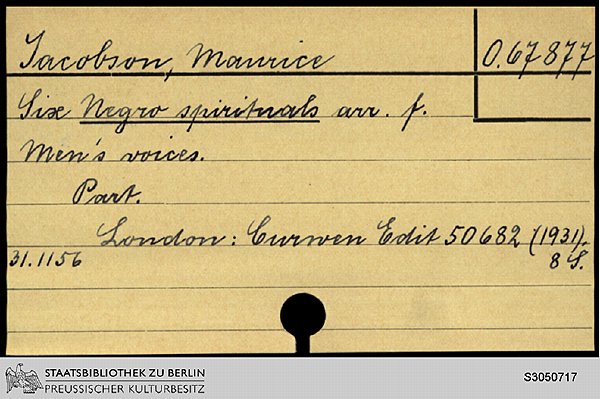 Jacobson, Maurice
O.67877
Six Negro spirituals arr. f.
Men's voices.
Part.
London: Curwen Edit 50682 (1931).
31.1156
8 S.
STAATSBIBLIOTHEK ZU BERLIN
PREUSSISCHER KULTURBESITZ
S3050717